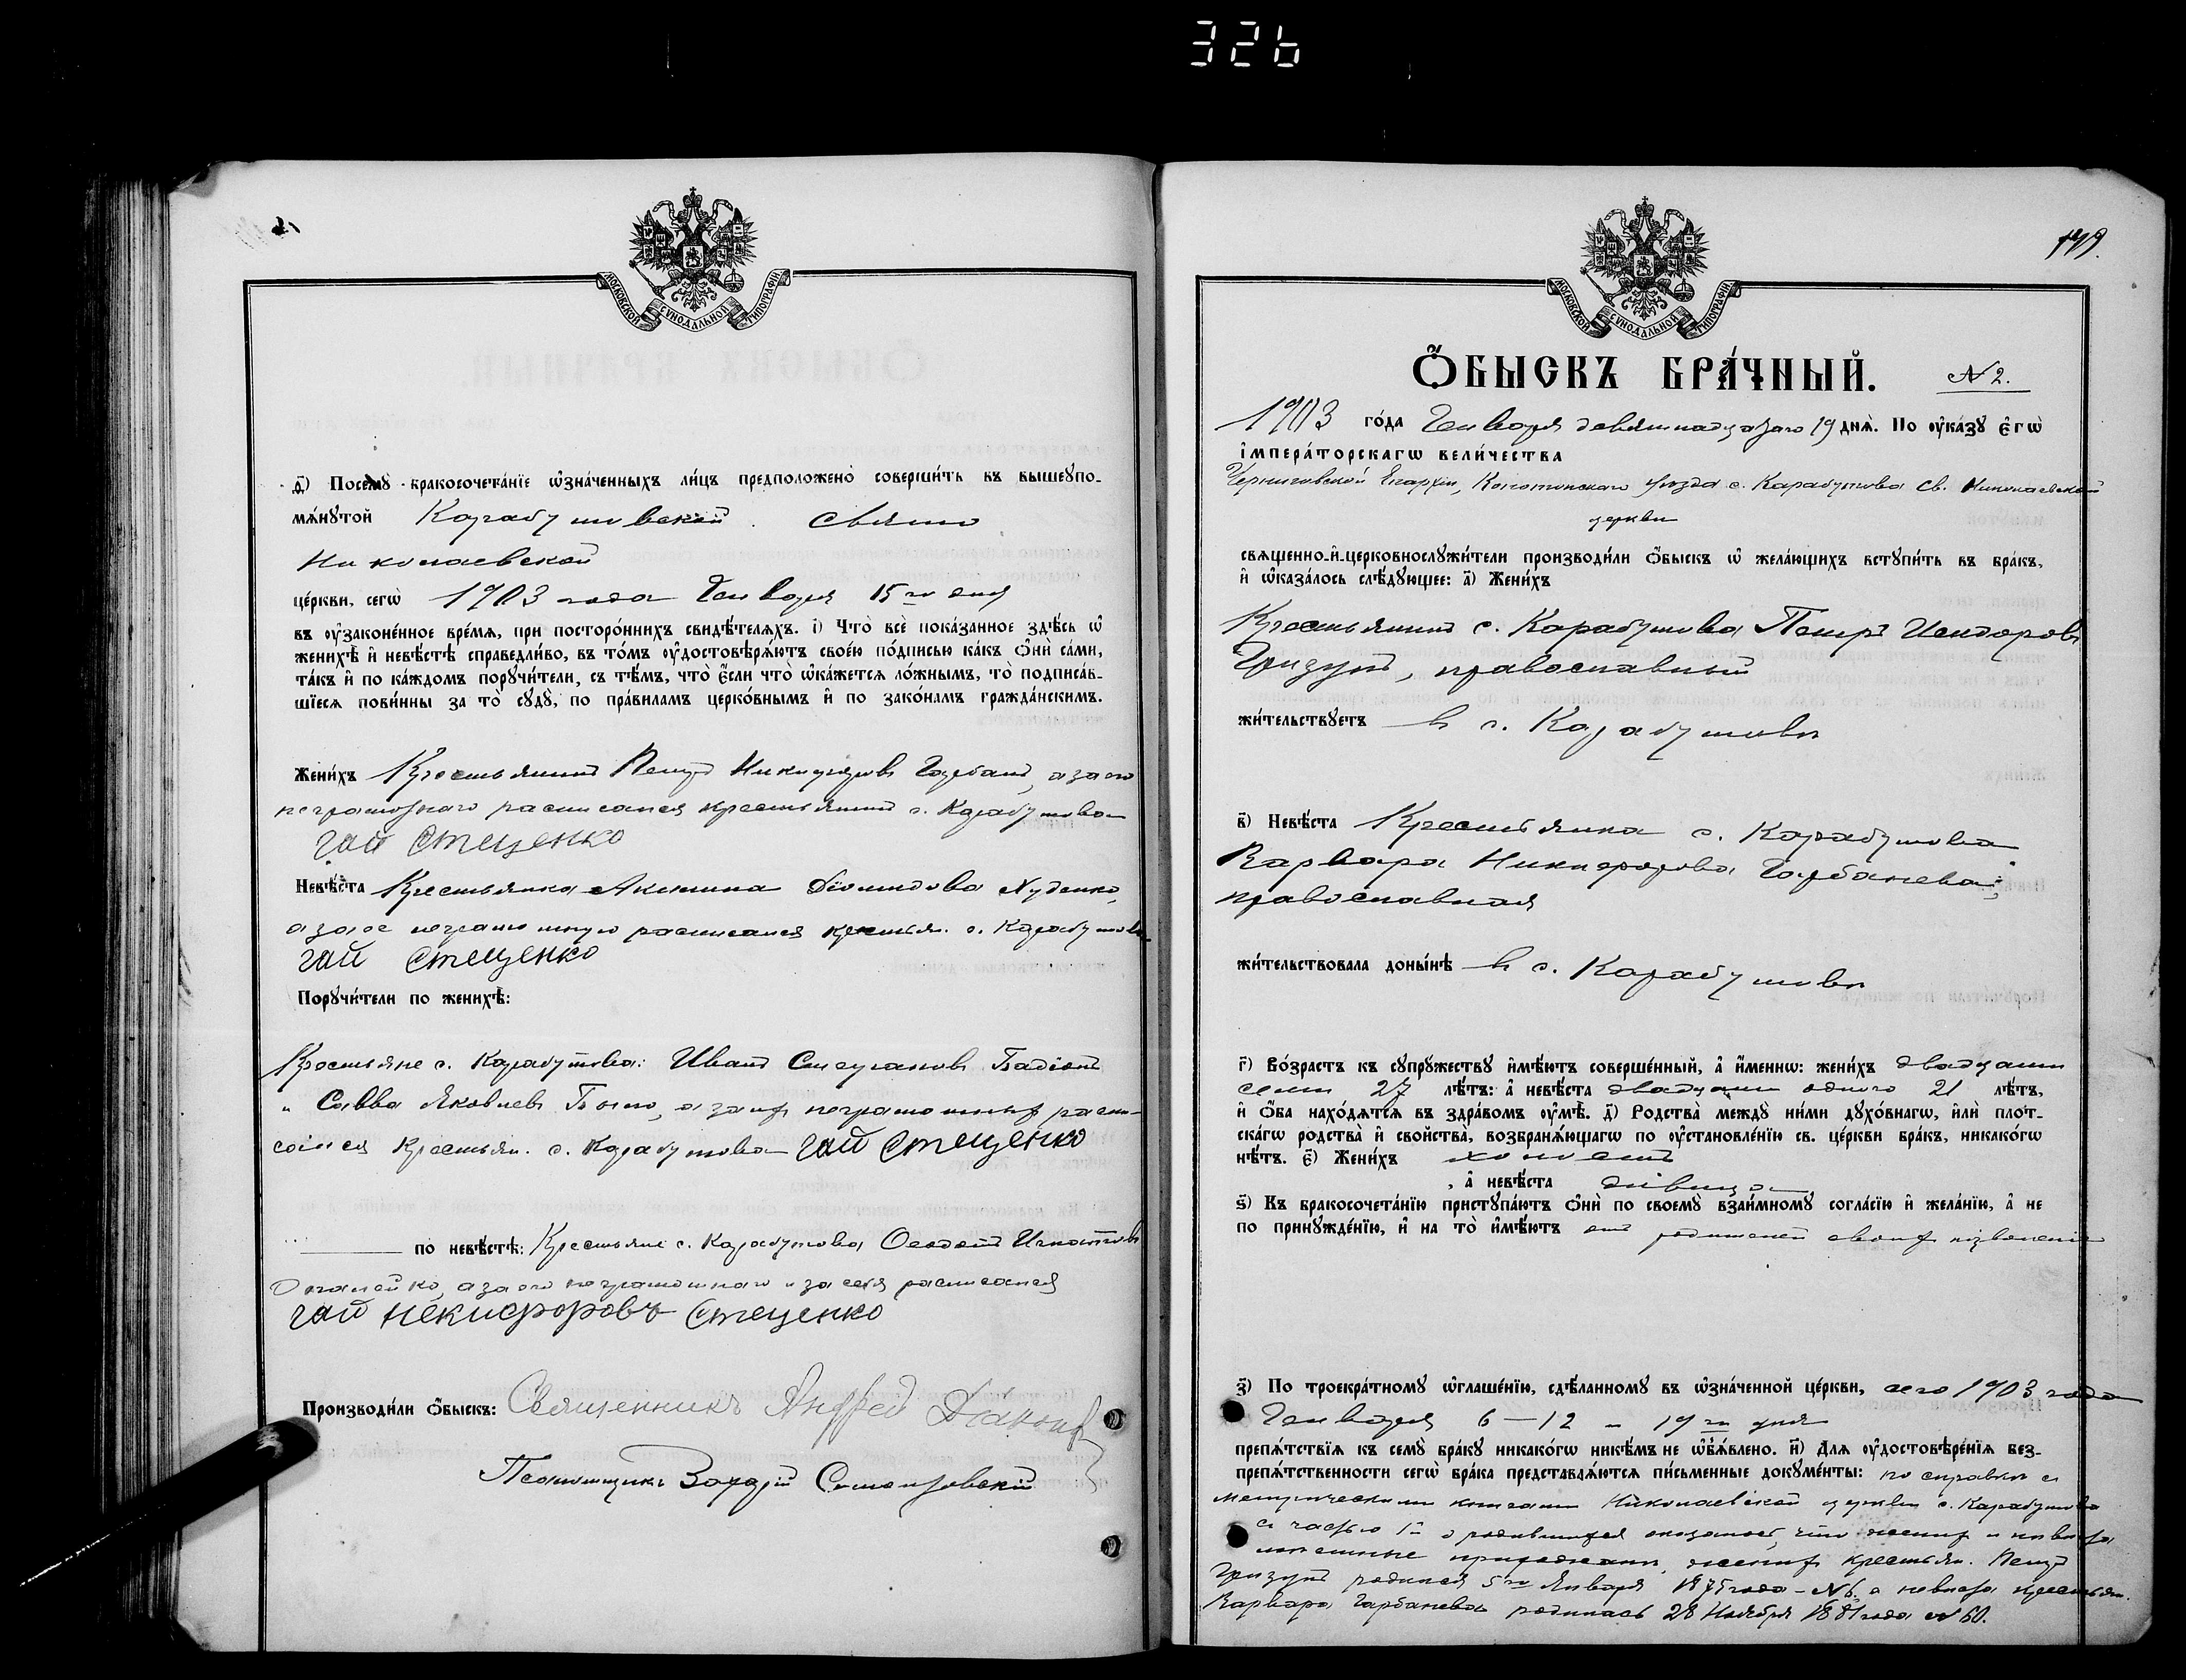 326
МОСКОВСКОЙ СѴНОДАЛЬНОЙ ТИПОГРАФІИ
д҃) Посемꙋ̀ бракосочета́нїе ѡ҆зна́ченныхъ ли́цъ предположено̀ соверши́ть въ вышеꙋпо-
мѧ́нꙋтой Карабутовской Свято
Николаевской
це́ркви, сегѡ̀ 1903 года Генваря 15го дня
въ ᲂу҆зако́ненное вре́мѧ, при посторо́ннихъ свидѣ́телѧхъ. і҃) Что̀ всѐ пока́занное здѣ́сь ѡ҆
женихѣ̀ и҆ невѣ́стѣ справедли́во, въ то́мъ ᲂу҆достовѣрѧ́ютъ свое́ю по́дписью ка́къ ѻ҆нѝ са́ми,
та́къ и҆ по ка́ждомъ порꙋчи́тели, съ тѣ́мъ, что̀ є҆́сли что̀ ѡ҆ка́жетсѧ ло́жнымъ, то̀ подписа́в-
шїесѧ пови́нны за то̀ сꙋдꙋ̀, по пра́виламъ церко́внымъ и҆ по зако́намъ гражда́нскимъ.
Жени́хъ Крестьянинъ Петръ Никифоровъ Горбань, а за его
неграмотнаго росписался крестьянинъ с. Карабутова
гай Стеценко
Невѣ́ста Крестьянка Акилина Діомидова Худенко,
а за ее неграмотную расписался крестьян. с. Карабутова
гай Стеценко
Порꙋчи́тели по женихѣ̀:
Крестьяне с. Карабутова: Иванъ Стефановъ
и Савва Яковлевъ а за ихъ неграмотныхъ распи-
сался Крестьян. с. Карабутова гай Стеценко
по невѣ́стѣ: Крестьяне с. Карабутова Ѳеодотъ Игнатовъ
а за его неграмотнаго и за себя расписался
гай некифоровъ Стеценко
Производи́ли ѻ҆́быскъ: Священникъ Андрей Діаконовъ
Псаломщикъ Захарій
МОСКОВСКОЙ СѴНОДАЛЬНОЙ ТИПОГРАФІИ
179.
Ѻ҆́БЫСКЪ БРА́ЧНЫЙ. N 2.
1903 го́да Генваря девятнадцатаго 19 днѧ̀. По ᲂу҆ка́зꙋ є҆гѡ̀
і҆мпера́торскагѡ вели́чества
Черниговской Епархіи, Конотопскаго уѣзда с. Карабутова Св. Николаевской
церкви
свѧщенно-и҆-церковнослꙋжи́тели производи́ли ѻ҆́быскъ ѡ҆ жела́ющихъ встꙋпи́ть въ бра́къ,
и҆ ѡ҆каза́лось слѣ́дꙋющее: а҃) Жени́хъ
Крестьянинъ с. Карабутова Петръ Исидоровъ
Гризунъ, православный
жи́тельствꙋетъ въ с. Карабутовѣ
в҃) Невѣ́ста Крестьянка с. Карабутова
Варвара Никифорова Горбанева,
православная
жи́тельствовала доны́нѣ въ с. Карабутовѣ
г҃) Во́зрастъ къ сꙋпрꙋ́жествꙋ и҆мѣ́ютъ соверше́нный, а҆ и҆́меннѡ: жени́хъ двадцати
семи 27 лѣ́тъ: а҆ невѣ́ста двадцати одного 21 лѣ́тъ,
и҆ ѻ҆́ба нахо́дѧтсѧ въ здра́вомъ ᲂу҆мѣ̀. д҃) Родства̀ междꙋ̀ ни́ми дꙋхо́внагѡ, и҆лѝ пло́т-
скагѡ родства̀ и҆ свойства̀, возбранѧ́ющагѡ по ᲂу҆становле́нїю св. це́ркви бра́къ, никако́гѡ
нѣ́тъ. є҃) Жени́хъ холостъ
, а҆ невѣ́ста дѣвица
ѕ҃) Къ бракосочета́нїю пристꙋпа́ютъ ѻ҆нѝ по своемꙋ̀ взаи́мномꙋ согла́сїю и҆ жела́нїю, а҆ не
по принꙋжде́нїю, и҆ на то̀ и҆мѣ́ютъ отъ родителей своихъ позволеніе
з҃) По троекра́тномꙋ ѡ҆глаше́нїю, сдѣ́ланномꙋ въ ѡ҆зна́ченной це́ркви, сего 1903 года
Генваря 6 — 12 и 19го дня
препѧ́тствїѧ къ семꙋ̀ бра́кꙋ никако́гѡ никѣ́мъ не ѡ҆бъѧ́влено. и҃) Для ᲂу҆достовѣре́нїѧ без-
препѧ́тственности сегѡ̀ бра́ка представлѧ́ютсѧ пи́сьменные докꙋме́нты: по справкѣ съ
метрическими книгами Николаевской церкви с. Карабутова
съ частью 1й о родившихся оказалось, что женихъ и невѣста
женихъ крестьян. Петръ
Гризунъ родился 5го Января 1875 года – N 6, а невѣста крестьян.
Варвара Горбанева родилась 28 Ноября 1881 года N 60.